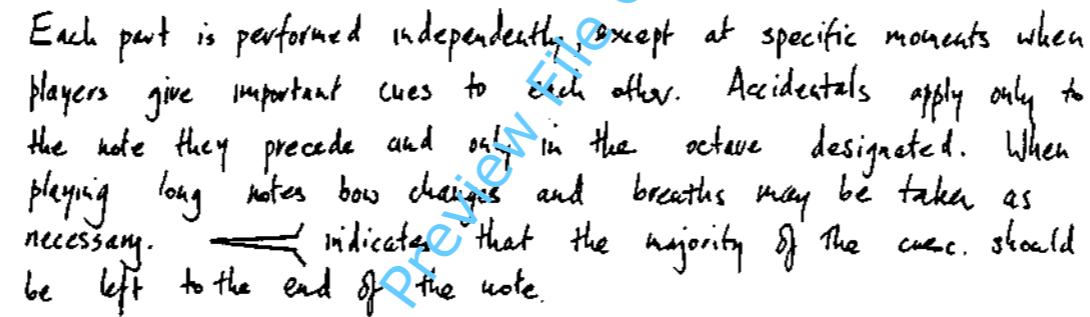 Each part is performed independently, except at specific moments when
players give important cues to each other. Accidentals apply only to
the note they precede and only in the octave designated. When
playing long notes bow changes and breaths may be taken as
necessary. indicates that the majority of the cresc. should
be left to the end of the note.
Preview File